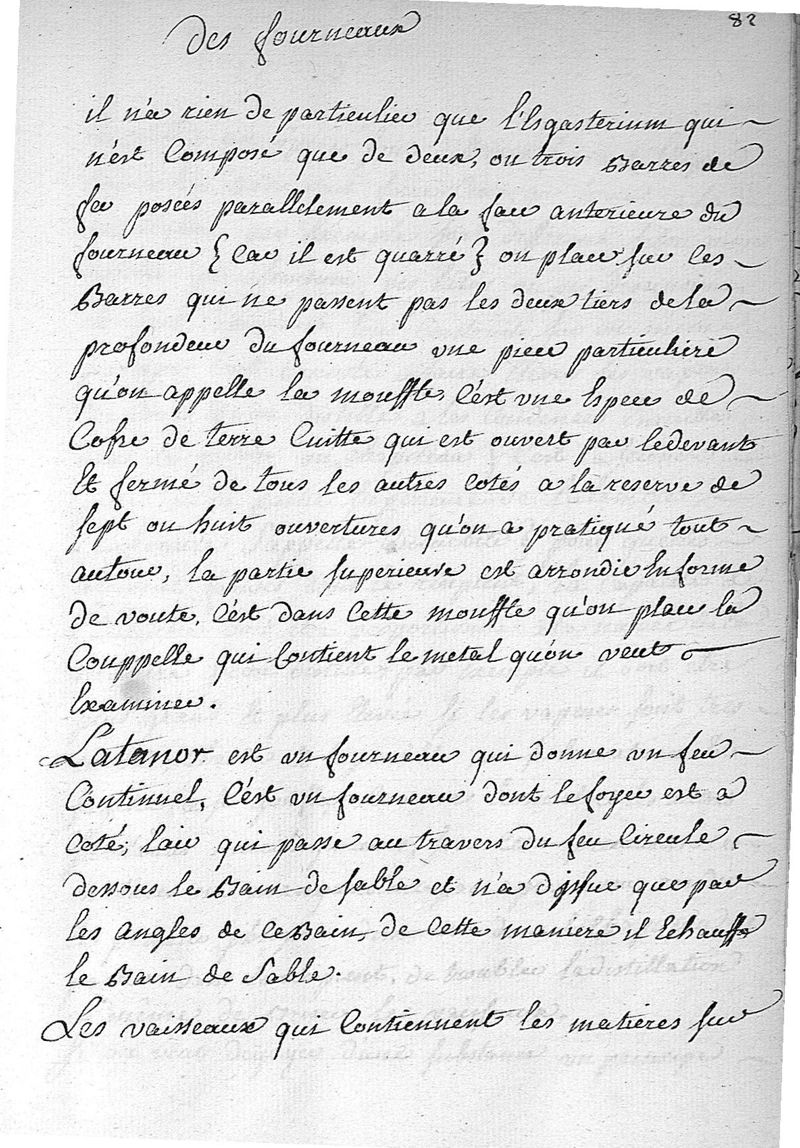 des fourneaux
82
il n'a rien de particulier que l'Ergasterium qui
n'est Composé que de deux, ou trois Barres de
fer posées parallelement a la face anterieure du
fourneau {Car il est quarré} on place sur Ces
Barres qui ne passent pas les deux tiers de la
profondeur du fourneau une piece particuliere
qu'on appelle la mouffle, C'est une Espece de
Cofre de terre Cuitte qui est ouvert par le devant
Et fermé de tous les autres cotés a la reserve de
sept ou huit ouvertures qu'on a pratiqué tout
autour, la partie superieure est arrondie En forme
de voute, C'est dans Cette mouffle qu'on place la
Couppelle qui Contient le metal qu'on veut
Examiner.
L'atanor est un fourneau qui donne un feu
Continuel, C'est un fourneau dont le foyer est a
Coté, l'air qui passe au travers du feu Circule
dessous le Bain de sable et n'a d'issue que par
les angles de Ce Bain, de Cette maniere il Echauffe
le Bain de Sable.
Les vaisseaux qui Contiennent les matieres sur